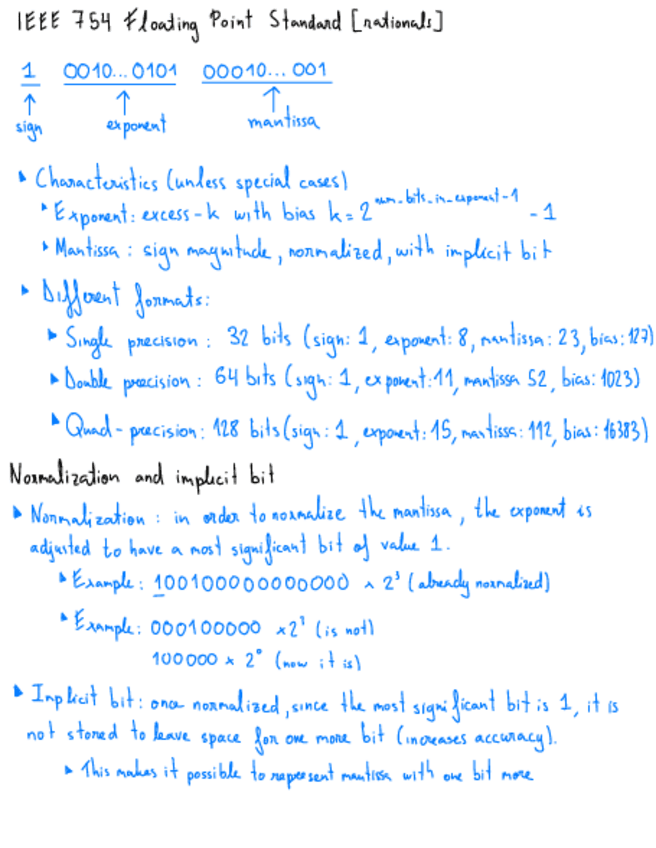 IEEE 754 Floating Point Standard [rationals]
1 0010...0101 00010...001
sign exponent mantissa
Characteristics (unless special cases)
Exponent: excess-k with bias k = 2^num_bits_in_exponent-1 - 1
Mantissa: sign magnitude, normalized, with implicit bit
Different formats:
Single precision: 32 bits (sign: 1, exponent: 8, mantissa: 23, bias: 127)
Double precision: 64 bits (sign: 1, exponent: 11, mantissa 52, bias: 1023)
Quad-precision: 128 bits (sign: 1, exponent: 15, mantissa: 112, bias: 16383)
Normalization and implicit bit
Normalization: in order to normalize the mantissa, the exponent is
adjusted to have a most significant bit of value 1.
Example: 100100000000000 × 2³ (already normalized)
Example: 000100000 × 2³ (is not)
100000 × 2⁰ (now it is)
Implicit bit: once normalized, since the most significant bit is 1, it is
not stored to leave space for one more bit (increases accuracy).
This makes it possible to represent mantissa with one bit more